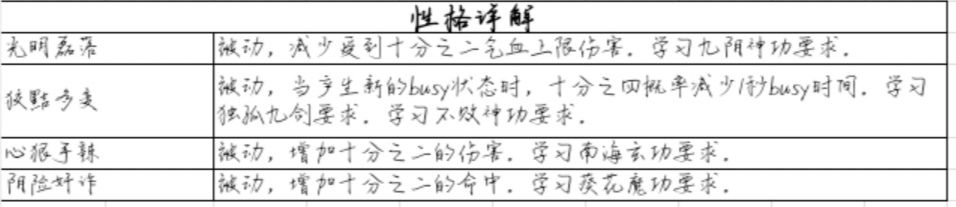 性格详解
光明磊落 被动，减少受到十分之二气血上限伤害．学习九阴神功要求．
狡黠多变 被动，当产生新的busy状态时，十分之四概率减少1秒busy时间．学习
独孤九剑要求．学习不败神功要求．
心狠手辣 被动，增加十分之二的伤害．学习南海玄功要求．
阴险奸诈 被动，增加十分之二的命中．学习葵花魔功要求．